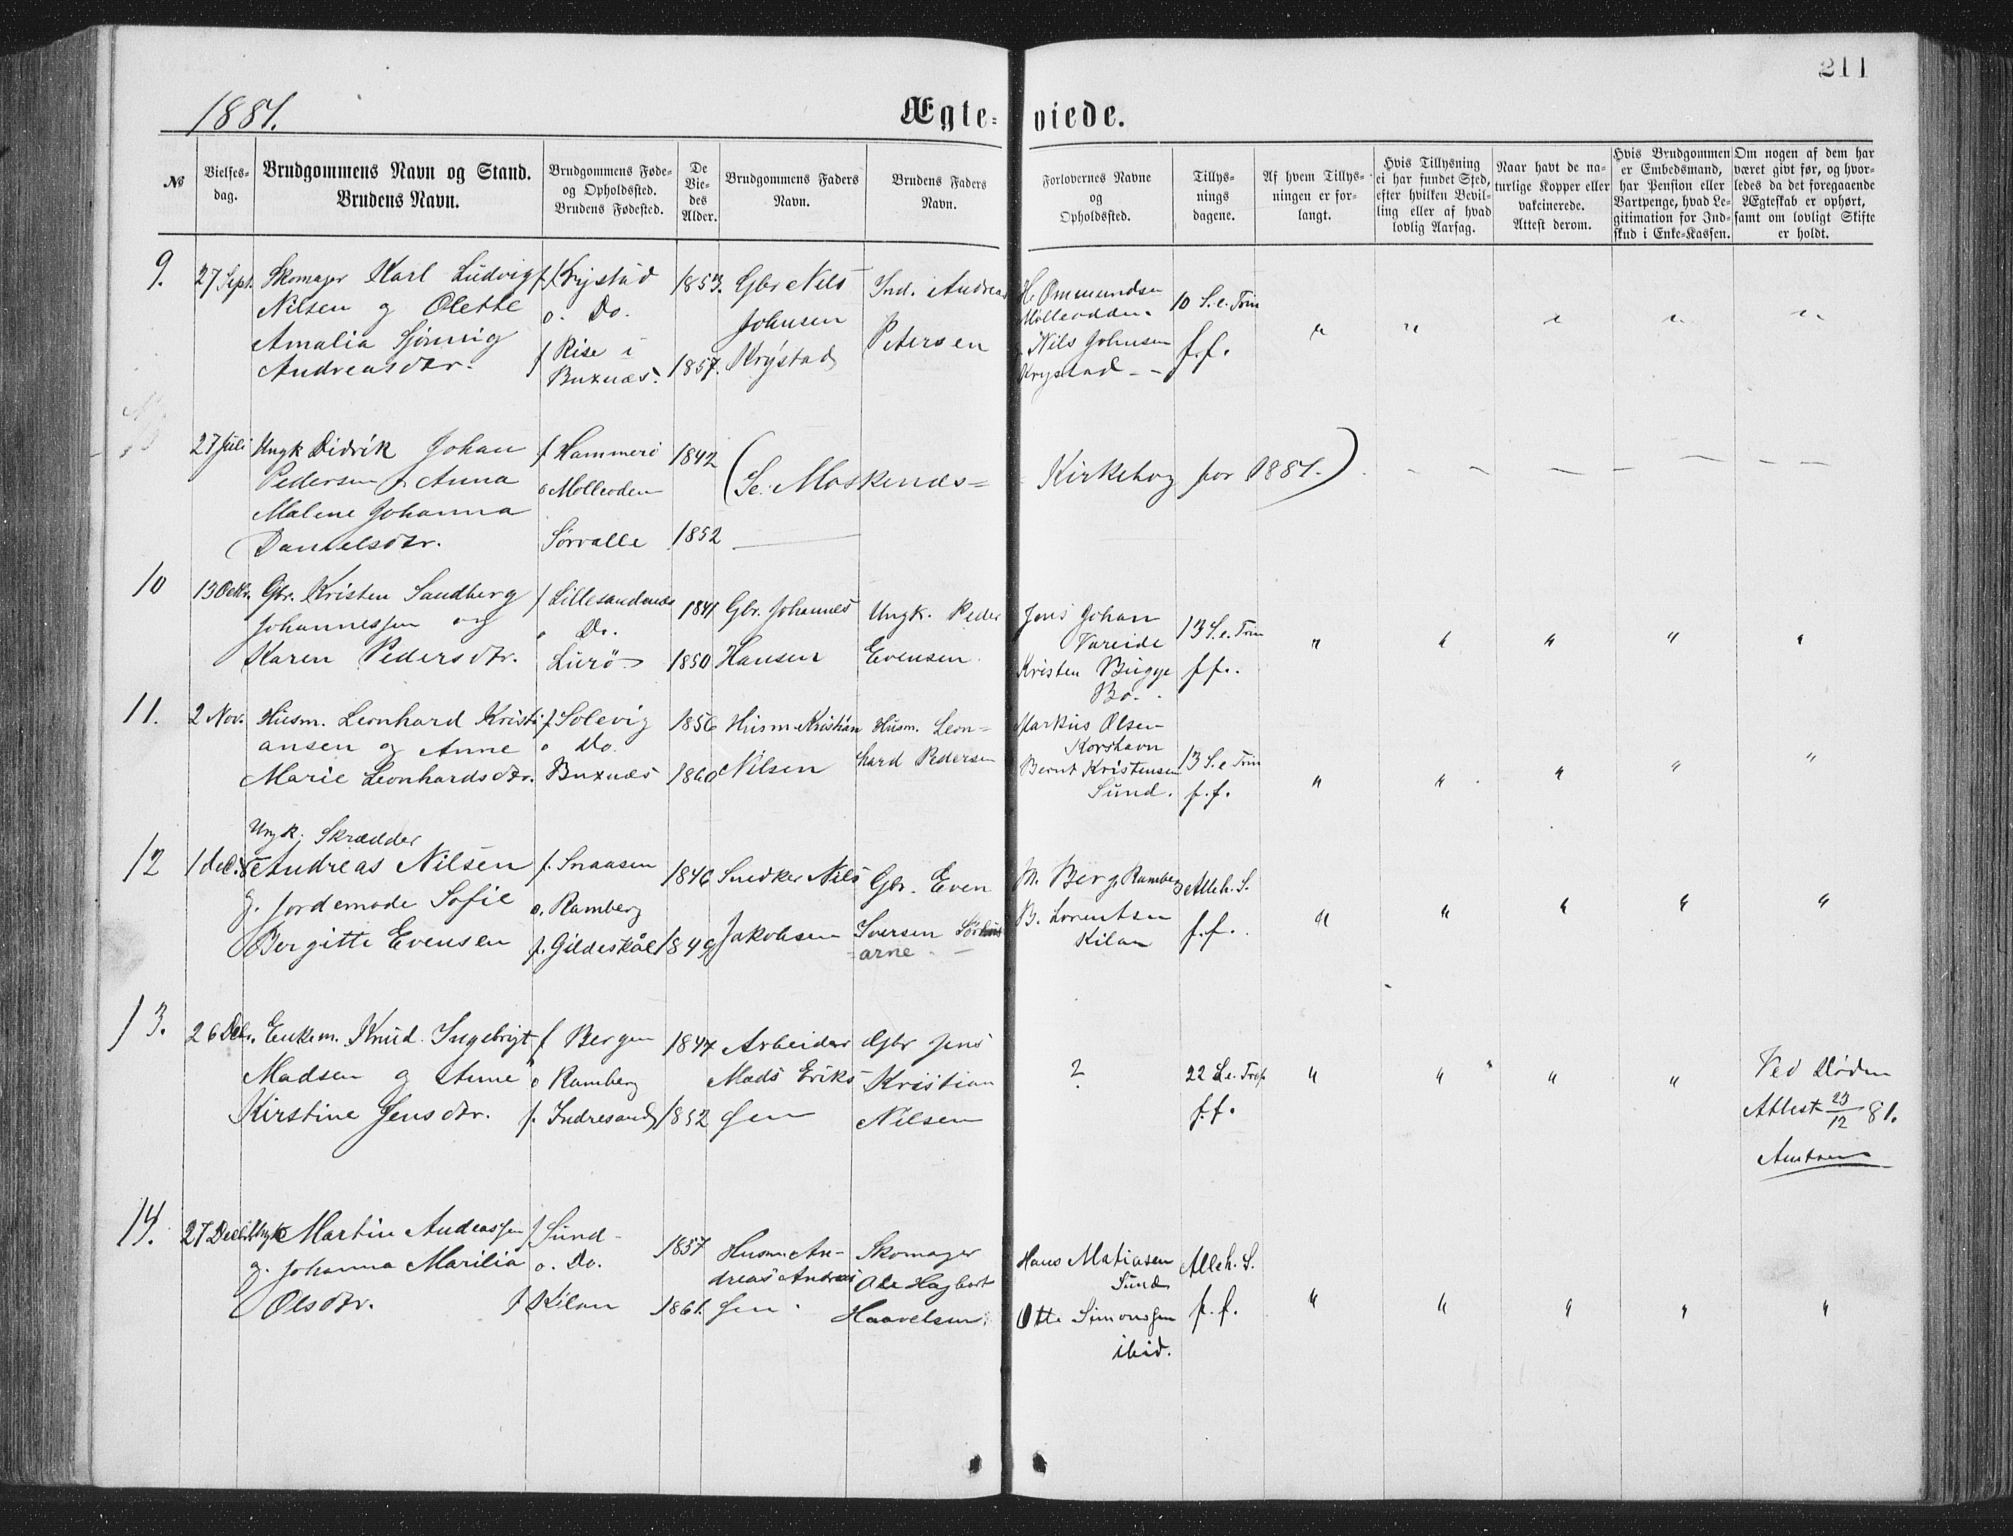 211
1881.
Ægteviede.
№
Vielses-
dag.
Brudgommens Navn og Stand.
Brudens Navn.
Brudgommens Føde-
og Opholdssted.
Brudens Fødested.
De
Vie-
des
Alder.
Brudgommens Faders
Navn.
Brudens Faders
Navn.
Forlovernes Navne
og
Opholdssted.
Tillys-
nings
dagene.
Af hvem Tillys-
ningen er for-
langt.
Hvis Tillysning
ei har fundet Sted,
efter hvilken Bevil-
ling eller af hvad
lovlig Aarsag.
Naar havt de na-
turlige Kopper eller
vakcinerede.
Attest derom.
Hvis Brudgommen
er Embedsmand,
har Pension eller
Vartpenge, hvad Le-
gitimation for Ind-
skud i Enke-Kassen.
Om nogen af dem har
været givt før, og hvor-
ledes da det foregaaende
Ægteskab er ophørt,
samt om lovligt Skifte
er holdt.
9.
27 Sept.
Skomager Karl Ludvig
Nilsen g Olette
Amalia Hjønnig
Andreasdtr.
f Krystad
o. Do.
f Rise i
Buxnæs.
1853.
1857.
Gbr Nils
Johnsen
Krystad
Ind. Andreas
Petersen
H. Ommundsen
Mølleodden
Nils Johnsen
Krystad - -
10 S. e. Trin
f.f.
" " " " "
27 Juli
Ungk Didrik Johan
Pedersen g Anna
Malene Johanna
Danielsdtr.
f Hammerö
o Molleoden
Sørvalle
1842
1852
(Se. Moskenæs= Kirkebog for 1881.)
10
13 Octbr.
Gbr. Kristen Sandberg
Johannessen og
Karen Pedersdtr.
f Lillesandnæs
o Do.
Lurö
1841
1850
Gbr. Johannes
Hansen
Ungk. Peder
Evensen.
Jens Johan
Vareide
Kristen Bugge
Bo.
13 S. e. Trin
f.f.
" " " " "
11.
2 Nov.
Husm. Leonhard Kristi
ansen og Anne
Marie Leonhardsdtr.
f. Solevig
o Do.
Buxnæs
1856
1860
Husm. Kristian
Nilsen
Husm. Leon=
hard Pedersen
Markus Olsen
Korshavn
Bernt Kristensen
Sund.
13 S. e Trin
f.f.
" " " " "
12
1 Dec.
Ungk. Skrædder
Andreas Nilsen
g. Jordemode Sofie
Bergitte Evensen
f. Snaasen
o. Ramberg
f. Gildeskål
1846
1849
Snedker Nils
Jakobsen
Gbr. Even
Iversen
M. Berg, Ramberg
B. Lorentsen
Kilan
Alleh. S.
f.f.
" " " " "
13.
26 Dcbr.
Enkem. Knud Ingebrigt
Madsen og Anne
Kirstine Jensdtr.
f Bergen
o Ramberg
f. Indresand
1847
1852
Arbeider
Mads Eriks
sen
Gbr Jens
Kristian
Nilsen
?
22 S. e. Tref
f.f.
" " " "
Ved Døden
Attest 23/12 81.
14.
27 Decbr.
Ungk Martin Andreassen
g. Johanna Marilia
Olsdtr.
f Sund
o. Do.
f Kilan
1857
1861.
Husm. An-
dreas Andreas
sen
Skomager
Ole Hagbart
Haavelsen
Hans Matiasen
Sund
Otte Simonsen
ibid.
Alleh. S.
f.f.
" " " " "